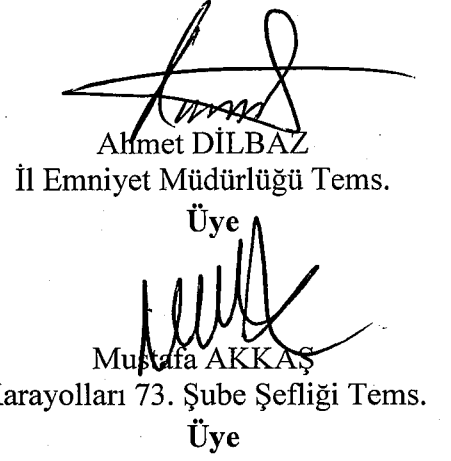 Ahmet DİLBAZ
İl Emniyet Müdürlüğü Tems.
Üye
Mustafa AKKAŞ
Karayolları 73. Şube Şefliği Tems.
Üye